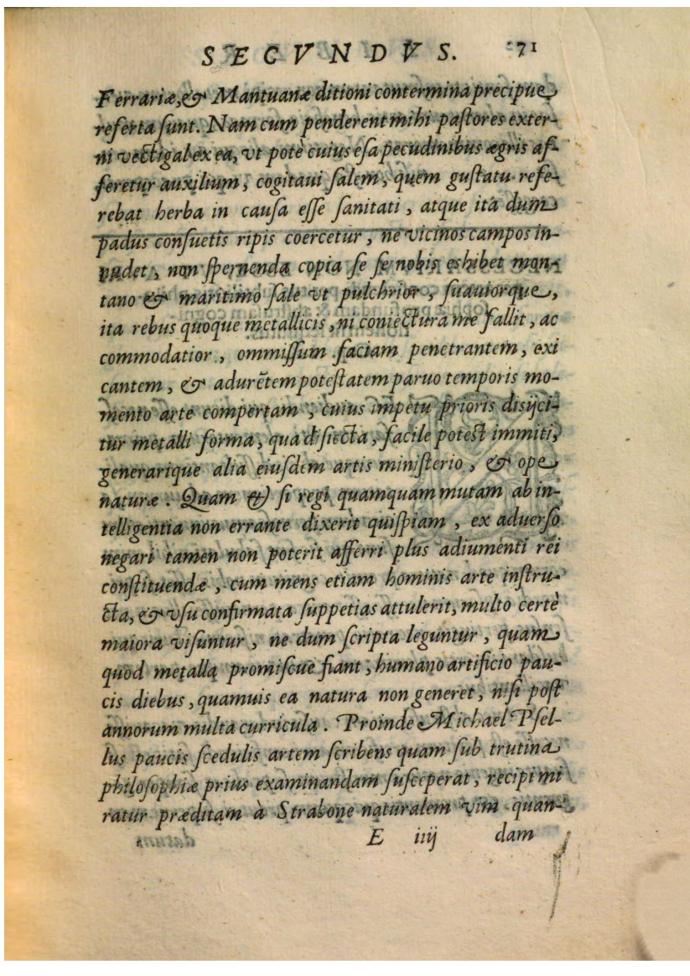 SECVNDVS. 71
Ferrariæ, & Mantuanæ ditioni contermina precipue
referta sunt. Nam cum penderent mihi pastores exter-
ni vectigal ex ea, vt potè cuius esa pecudinibus ægris af-
feretur auxilium, cogitaui salem, quem gustatu refe-
rebat herba in causa esse sanitati, atque ita dum
padus consuetis ripis coercetur, ne vicinos campos in-
undet, non spernenda copia se se nobis eshibet mon-
tano & maritimo sale vt pulchrior, suauiorque,
ita rebus quoque metallicis, ni coniectura me fallit, ac
commodatior, ommissum faciam penetrantem, exi
cantem, & adurẽtem potestatem paruo temporis mo-
mento arte compertam, cuius impetu prioris disijci-
tur metalli forma, qua disiecta, facile potest immiti,
generarique alia eiusdem artis ministerio, & ope
naturæ. Quam & si regi quamquam mutam ab in-
telligentia non errante dixerit quispiam, ex aduerso
negari tamen non poterit afferri plus adiumenti rei
constituendæ, cum mens etiam hominis arte instru-
cta, & vsu confirmata suppetias attulerit, multo certè
maiora visuntur, ne dum scripta leguntur, quam
quod metalla promiscue fiant, humano artificio pau-
cis diebus, quamuis ea natura non generet, nisi post
annorum multa curricula. Proinde Michael Psel-
lus paucis scedulis artem scribens quam sub trutina
philosophiæ prius examinandam susceperat, recipi mi
ratur præditam à Strabone naturalem vim quan-
E iiij dam